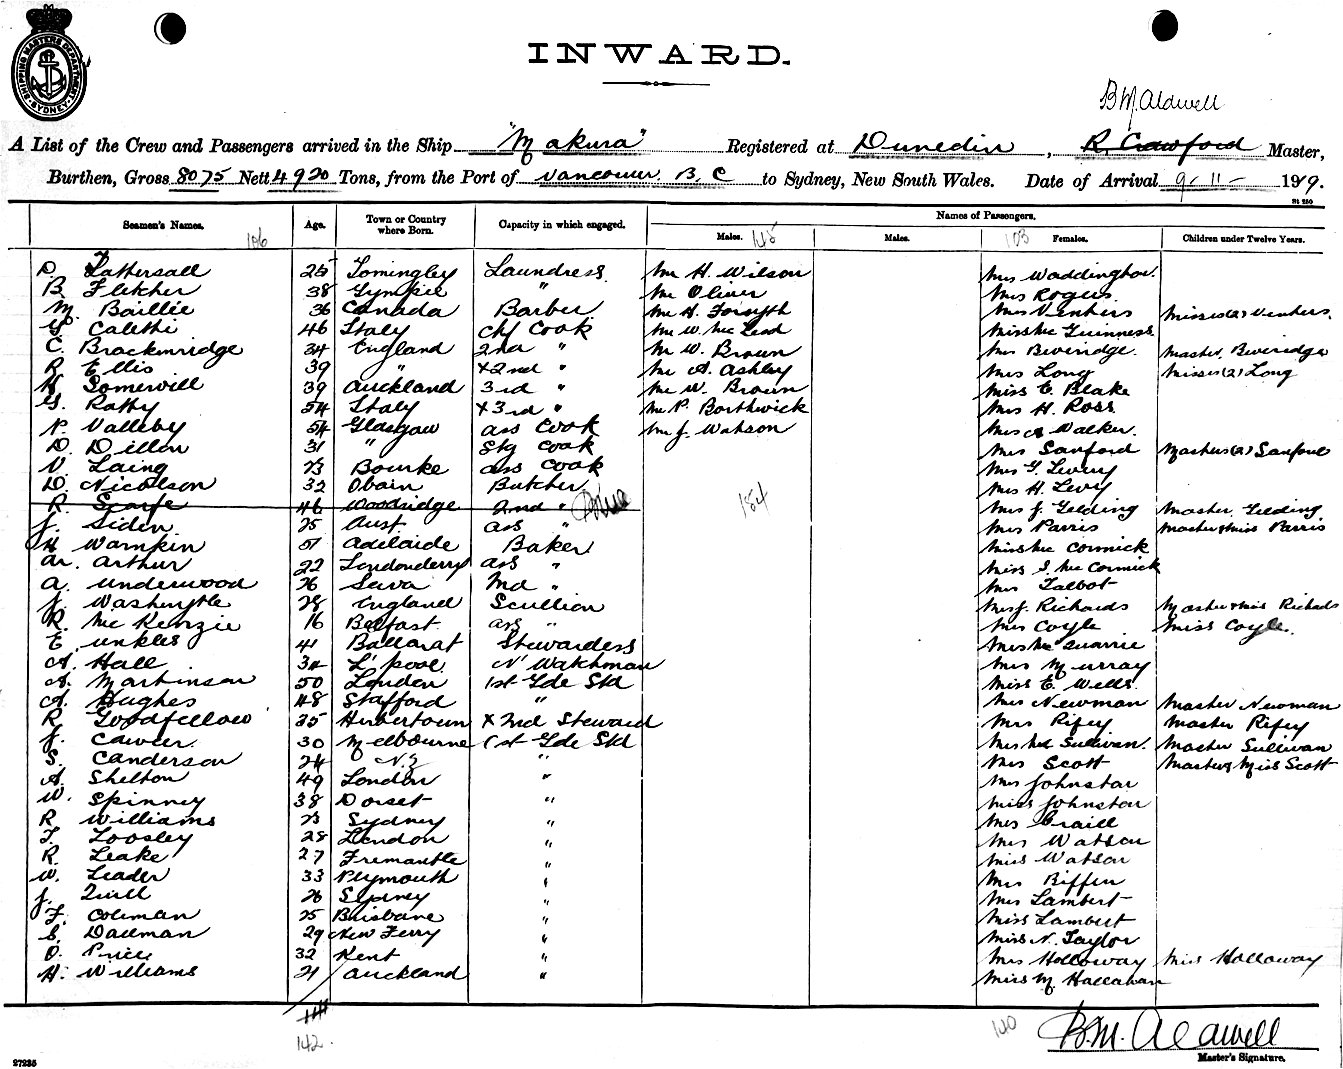 SHIPPING MASTERS DEPARTMENT SYDNEY
INWARD.
B M Aldwell
A List of the Crew and Passengers arrived in the Ship "Makura" Registered at Dunedin, R. Crawford Master,
Burthen, Gross 8075 Nett 4920 Tons, from the Port of Vancouver. B. C to Sydney, New South Wales. Date of Arrival 9-11- 1919.
St 250
Seamen's Names. 106 Age. Town or Country where Born. Capacity in which engaged. Names of Passengers.
Males. 145 Males. 103 Females. Children under Twelve Years.
D. Tattersall 25 Tomingley Laundress Mr H. Wilson Mrs Waddington.
B Fletcher 38 Gympie " Mr Oliver Mrs Rogers.
M. Baillie 36 Canada Barber Mr H. Forsyth Mrs Venkers Misses (2) Venkers.
Calethi 46 Italy Chf Cook Mr W. McLeod Miss Mc Guinness
C. Brackinridge 34 England 2nd " Mr W. Brown Mrs Beveridge. Master. Beveridge
R Ellis 39 " x2nd " Mr A. Ashley Mrs Long Misses (2) Long
Somervill 39 Auckland 3rd " Mr W. Brown Miss E. Blake
G. Ratty 54 Italy x 3rd " Mr P. Borthwick Mrs H. Ross
P. Valleby 54 Glasgow ass Cook Mr J. Watson Mrs A Walker.
D. Dillon 31 " Stg Cook Mrs Sanford Masters (2) Sanford
V. Laing 23 Bourke ass Cook Mrs G. Levy
D. Nicolson 32 Obain Butcher Mrs H. Levy
R Scarfe 46 Woodridge 2nd " 184 Mrs J. Gelding Master. Gelding
J. Siden 25 Aust ass " Mrs Parris Master & Miss Parris
H Warnkin 51 Adelaide Baker Miss Mc Cormick
W. Arthur 22 Londonderry ass " Miss S. Mc Cormick
A. Underwood 26 Suva 2nd " Mrs Talbot
J. 28 England Scullion Mrs J. Richards Master & Miss Richards
R. Mc Kenzie 16 Belfast. ass " Mrs Coyle Miss Coyle.
E. Unkles 41 Ballarat Stewardess Mrs Mc Quarrie
A. Hall 34 L'pool N' Watchman Mrs Murray
A. Martinson 50 London 1st Gde Std Miss E. Wells.
A. Hughes 48 Stafford " Mrs Newman Master Newman
R Goodfellow 35 Hubertown x 2nd Steward Mrs Ripey Master Ripey
J. Cawler. 30 Melbourne 1st Gde Std Mrs Sullivan. Master Sullivan
S. Canderson 24 N.Z " Mrs Scott Master & Miss Scott
A. Shelton 49 London " Mrs Johnston
W. Spinney 38 Dorset " Miss Johnston
R Williams 23 Sydney " Mrs Craill
T. Loosley 28 London " Mrs Watson
R. Leake 27 Fremantle " Miss Watson
W. Leader 33 Plymouth " Mrs Biffen
J. Quill 26 Sydney " Mrs Lambert
F. Coleman 25 Brisbane " Miss Lambert
S. Dallman 29 New Ferry " Miss N. Taylor
O. Price 32 Kent " Mrs Holloway Miss Holloway
H. Williams 21 Auckland " Miss M. Hallahan
141
142. 140 B.M. Aldwell
Master's Signature.
27235